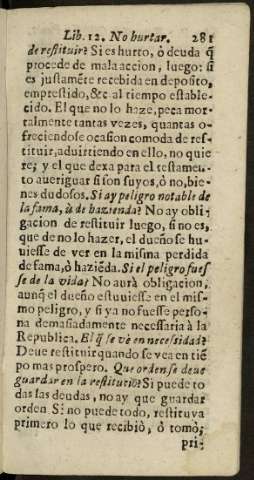 Lib. 12. No hurtar. 281
de restituir? Si es hurto, ò deuda q̃
procede de mala accion, luego: si
es justamẽte recebida en deposito,
emprestido, &c al tiempo estable-
cido. El que no lo haze, peca mor-
talmente tantas vezes, quantas o-
freciendose ocasion comoda de res-
tituir, aduirtiendo en ello, no quie
re; y el que dexa para el testamẽ-
to aueriguar si son suyos, ò no, bie-
nes dudosos. Si ay peligro notable de
la fama, ù de hazienda? No ay obli-
gacion de restituir luego, si no es,
que de no lo hazer, el dueño se hu-
uiesse de ver en la misma perdida
de fama, ò haziẽda. Si el peligro fues
se de la vida? No aurà obligacion,
aunq̃ el dueño estuuiesse en el mis-
mo peligro, y si ya no fuesse perso-
na demasiadamente necessaria à la
Republica. El q̃ se vè en necesidad?
Deue restituir quando se vea en tiẽ
po mas prospero. Que orden se deue
guardar en la restituciõ? Si puede to
das las deudas, no ay que guardar
orden Si no puede todo, restituya
primero lo que recibiò, ò tomò,
pri-